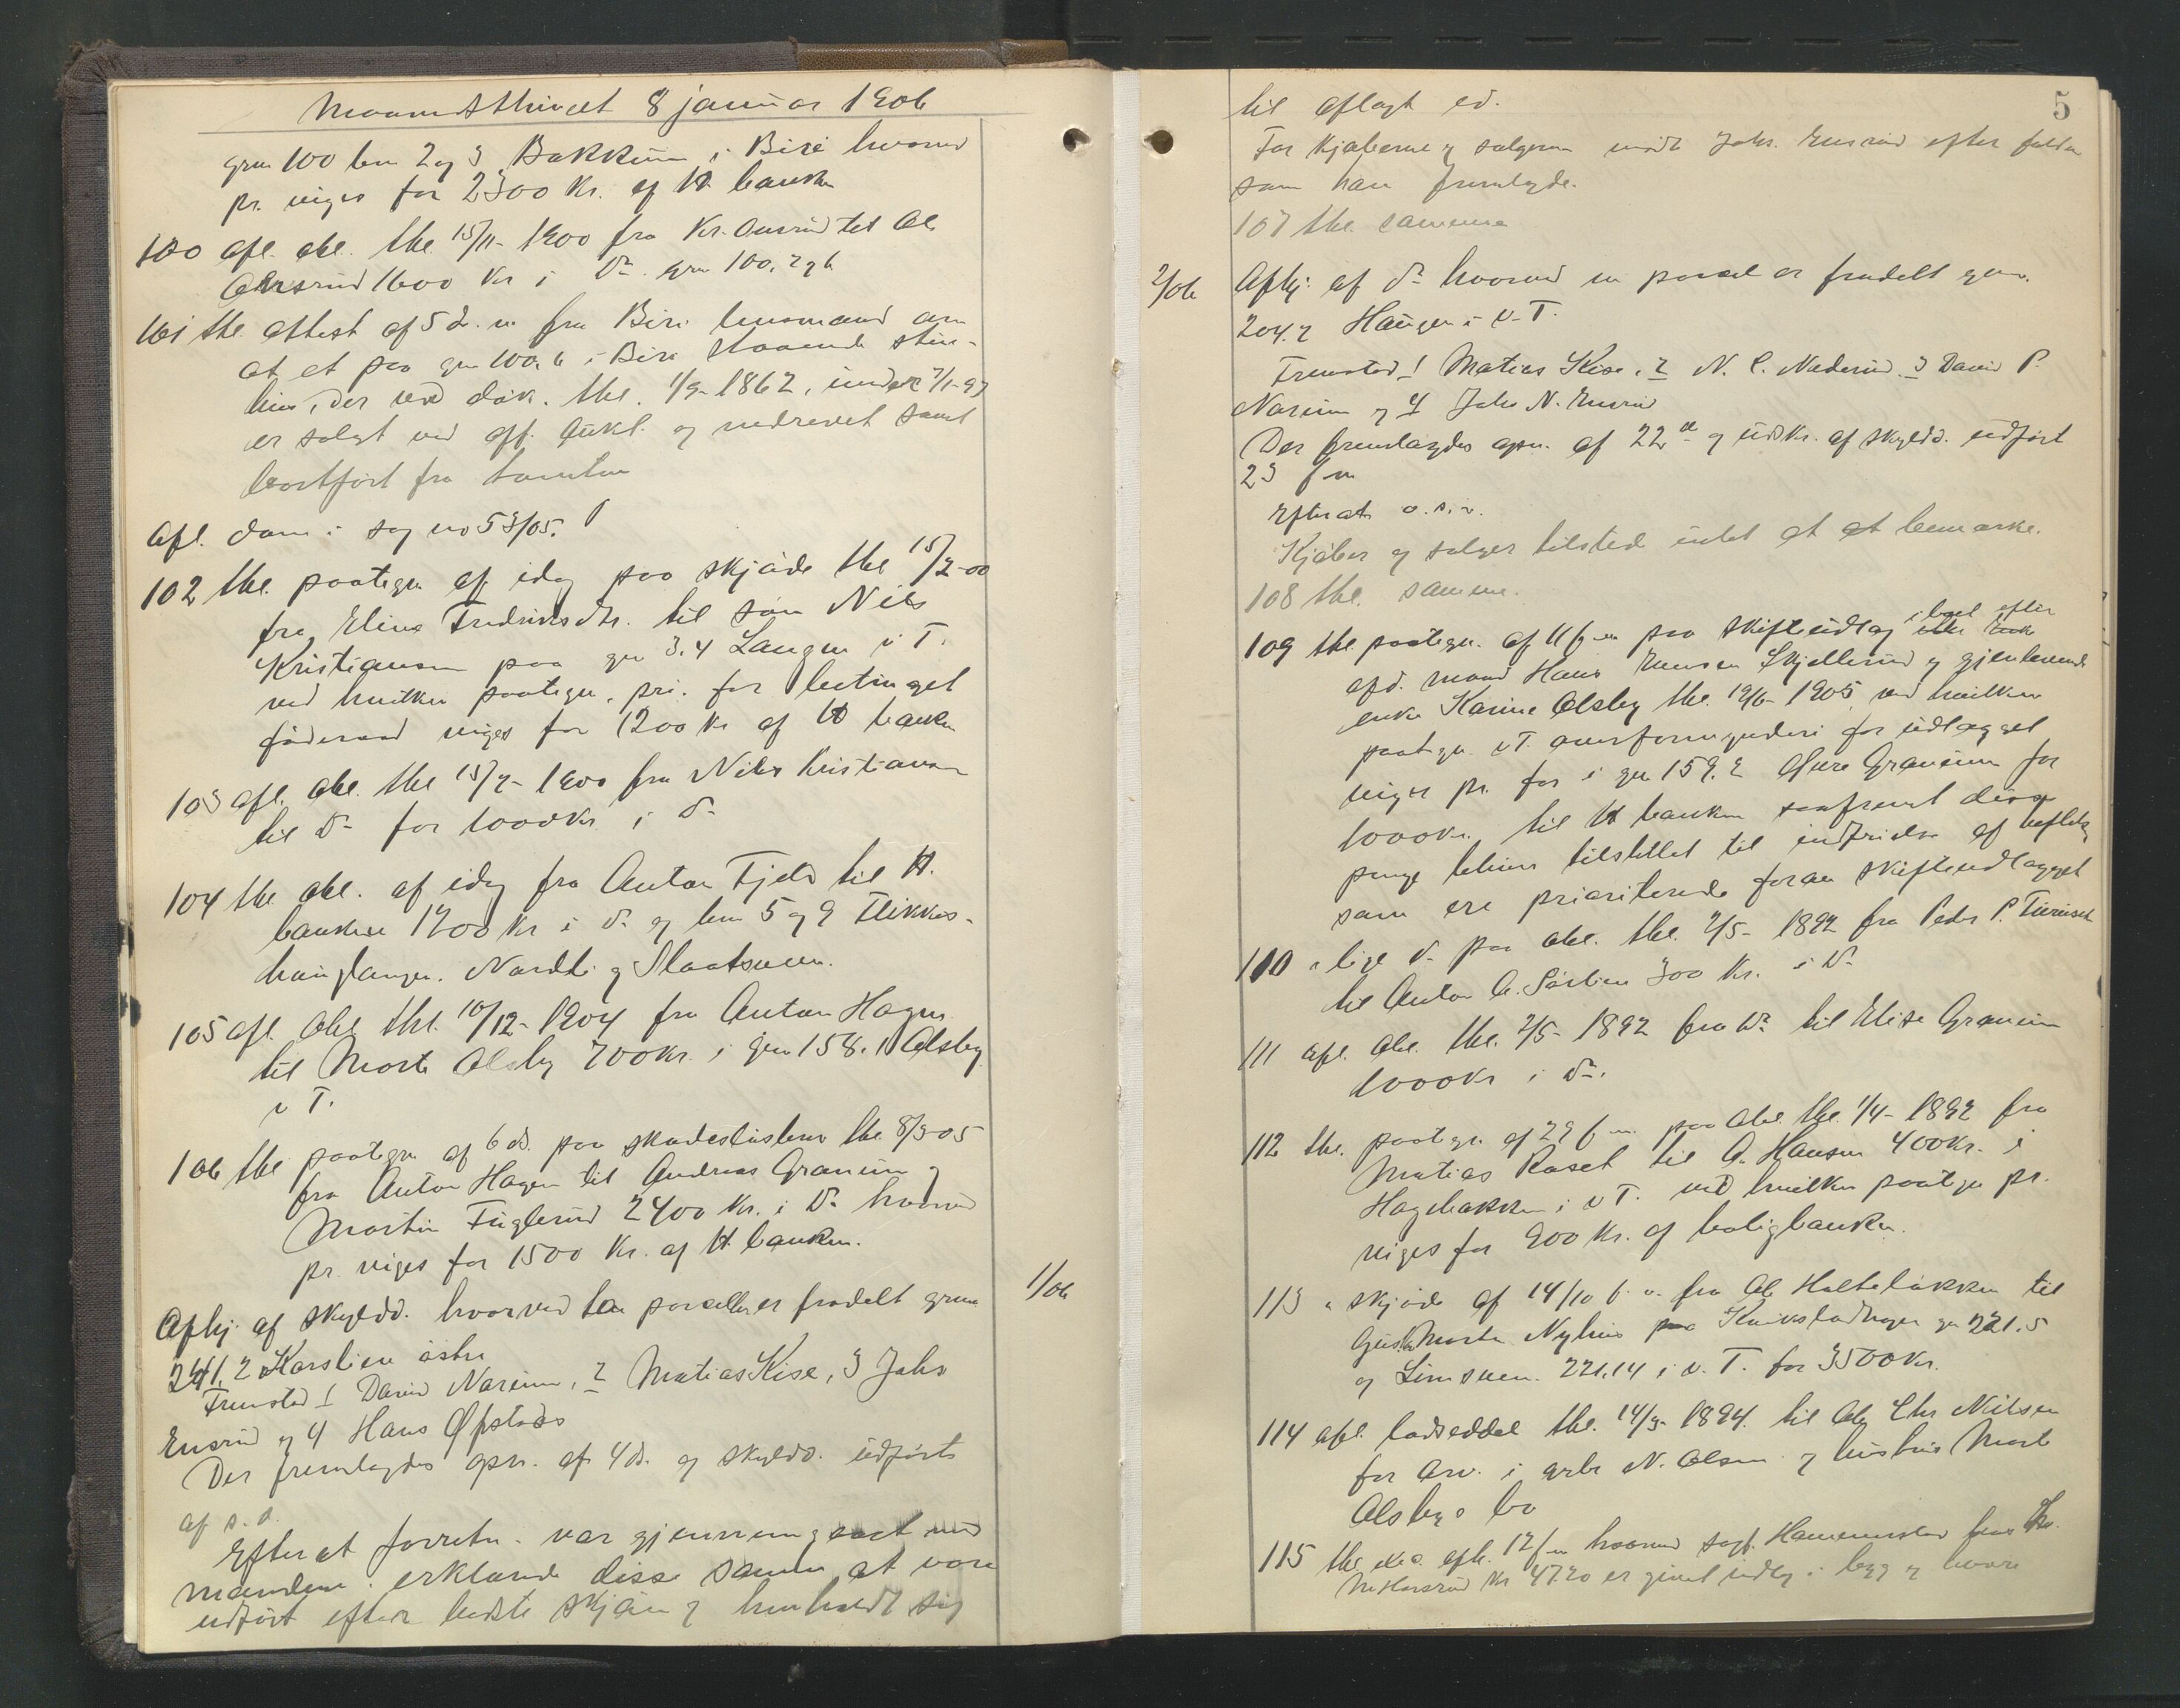 Maanedsthinget 8 januar 1906
grn 100 brn 2 og 3 Bakkum i Biri hvorved
pr. viges for 2300 Kr. af H banken
100 afl. obl. thl. 15/11-1900 fra Kr. til Ole
1600 Kr i do. grn 100, 2 og 6
101 thl. attest af 5 d. m. fra Biri lensmand om
at et paa grn 100, 6 i Biri staaende
der ved dok. thl. 1/9-1862,
er solgt ved off. aukt. og nedrevet samt
bortført fra tomten
Afl. dom i sag no 53/05.
102 thl. paategn af idag paa skjøde thl 15/2-00
fra Eline Fredriksdtr. til søn Nils
Kristiansen paa grn 3.4 Langen i T.
ved hvilken paategn. pri. for betinget
føderaad viges for 1200 Kr af H banken
103 afl. obl. thl 15/2-1900 fra Nils Kristiansen
til do for 1000 Kr i do
104 thl obl. af idag fra Anton Fjeld til H.
banken 1200 Kr i do og brn 5 og 9
Nordli og Slaatsveen.
105 afl. obl. thl. 10/12-1904 fra Anton Hagen
til Marte Alsby 700 Kr. i grn 158.1 Alsby
v T.
106 thl paategn af 6 ds. paa skadesløsbrev thl 8/3-05
fra Anton Hagen til Andreas Granum og
Martin Fuglerud 2400 Kr. i do hvorved
pr. viges for 1500 Kr. af H. banken.
1/06
Afhj. af skyldd. hvorved to parceller er fradelt grn
241, 2 Karslien østre
Fremstod 1 David Narum, 2 Matias Kise, 3 Johs
Ensrud og 4 Hans Øfstaas
Der fremlagdes opn. af 4 ds. og skyldd. udført
af s. d.
Efter at forretn. var gjennemgaaet med
mændene erklærede disse samme at være
udført efter bedste skjøn og henholdt sig
5
til aflagt ed.
For kjøberne og sælgeren mødte Johs. Ensrud efter fuldm
som han fremlagde.
107 thl. samme
2/06
Afhj. af do hvorved en parcel er fradelt grn.
204.2 Haugen i V. T.
Fremstod 1 Matias Kise, 2 N. C. Naderud, 3 David P.
Narum og 4 Johs N. Ensrud
Der fremlagdes opn. af 22de og udskr. af skyldd. udført
23 f m
Efter at o. s. v.
Kjøber og sælger tilstede intet at at bemærke.
108 thl. samme.
109 thl paategn. af 11 f m paa skifteudlæg i boet efter
afd. mand Hans Skjellerud og gjenlevende
enke Karine Alsby thl. 19/6-1905, ved hvilken
paategn. v T. overformynderi for udlægget
viger pr. for i grn 159.2 Øvre Granum for
1000 Kr. til H banken saafremt disse
penge blive tilstillet til indfrielse af heftelser
som ere prioriterede foran skifteudlægget
110 " lige do paa obl. thl. 2/5-1892 fra Peder P.
til Anton A. Sørlien 300 Kr. i do
111 afl. obl. thl. 2/5-1892 fra do til Elise Granum
1000 Kr i do.
112 thl. paategn. af 29 f m. paa obl. thl. 1/4-1892 fra
Matias Roset til A. Hansen 400 Kr. i
Hagebakken i v T. ved hvilken paategn pr.
viges for 900 Kr. af boligbanken.
113 " skjøde af 14/10 f. a. fra Ole Holteløkken til
Marte Nyhus paa grn 221.5
og 221.14 i v. T. for 3500 Kr.
114 afl. ladseddel thl. 14/9-1894 til Ole Chr Nilsen
for arv. i grbr N. Olsen og hustru Marte
Alsbys bo
115 thl. exs. afh. 12 f m hvorved sagf.
Kr 47.20 er givet udlæg i bygg og havre